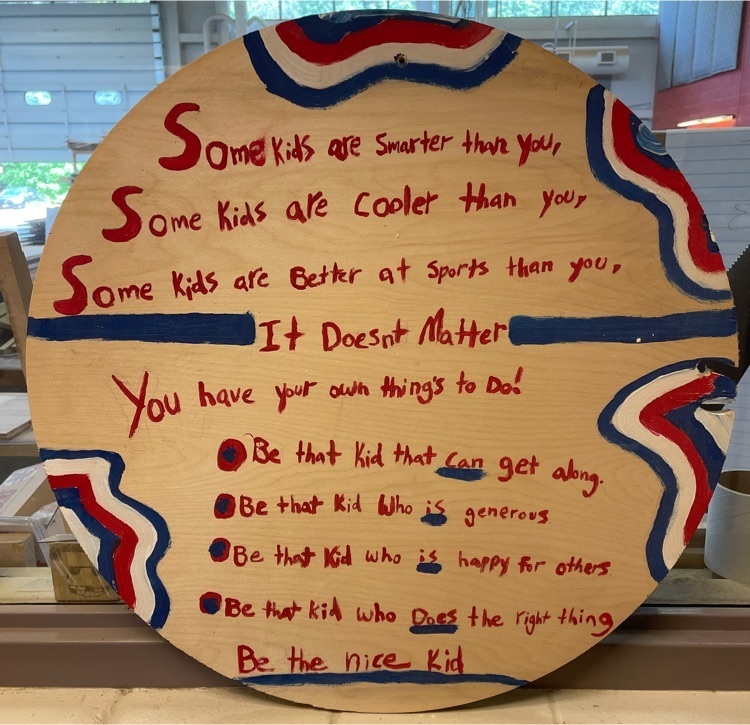 Some Kids are Smarter than you,
Some Kids are Cooler than you,
Some Kids are Better at Sports than you,
It Doesnt Matter
You have your own thing's to Do!
Be that Kid that can get along.
Be that Kid Who is generous
Be that Kid who is happy for others
Be that kid who Does the right thing
Be the nice Kid